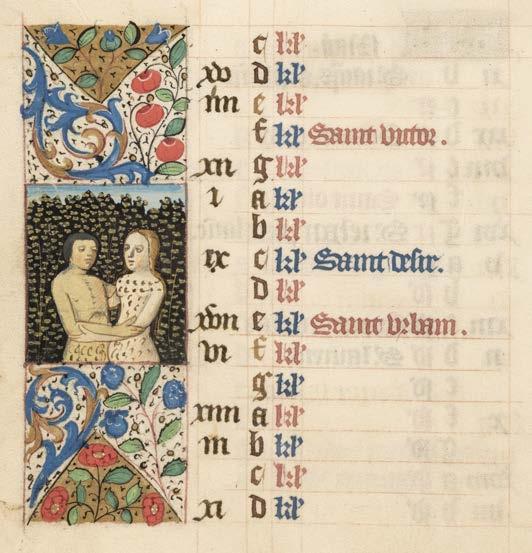 c kl
xv d kl
iiii e kl
f kl Saint victor.
xii g kl
i a kl
b kl
ix c kl Saint desir.
d kl
xvii e kl Saint urbain.
vi f kl
g kl
xiiii a kl
iii b kl
c kl
xi d kl